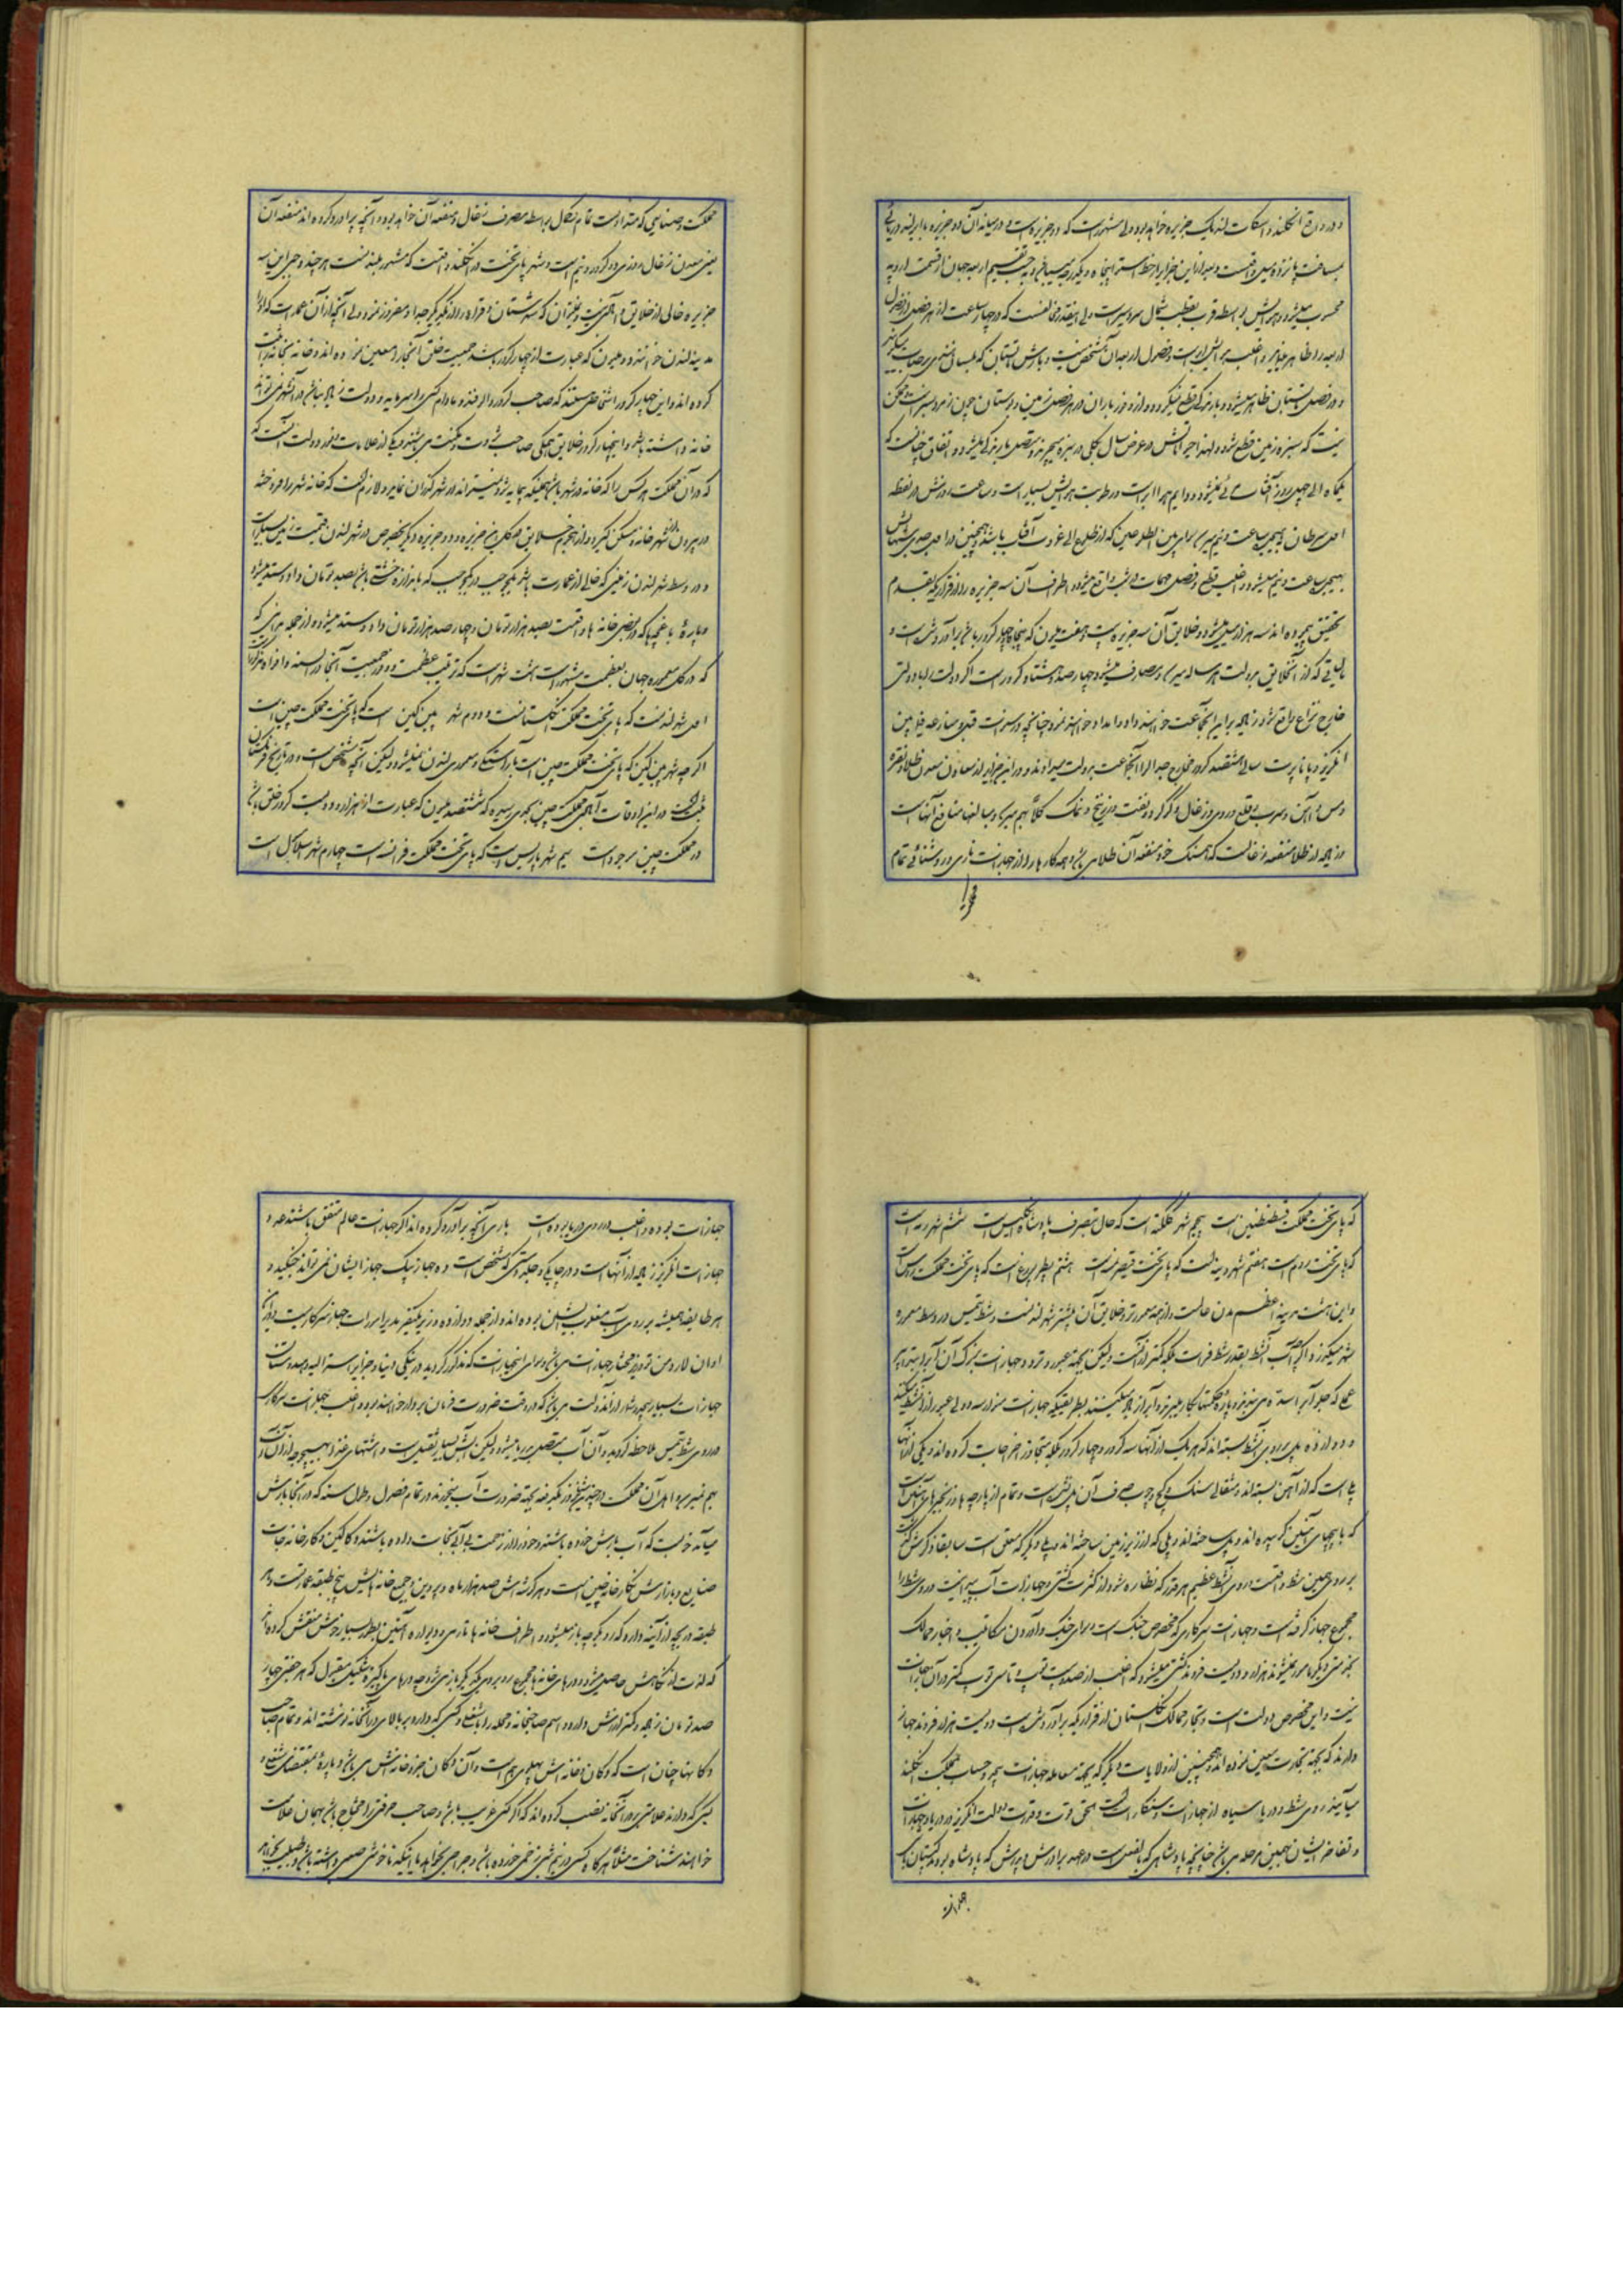 و در واقع انگلند و اسکات لند یک جزیره خواهد بود ولی مشهور است که دو جزیره است و در میانه آن دو جزیره با ایرلند دریائی
بمسافت پانزده میل واقست و بعد از این جزایر از خط استوا پنجاه و یکدرجه میباشد و به حسب تقسیم اربعه جهان از قسمت اروپه
محسوب میشود و هوایش بواسطه قرب بقطب شمال سردسیر است ولی اینقدر مخالفست که در چهار ساعت از هر فصلی از فصول
اربعه را ظاهر و اغلب هوایش ابر است و فصول اربعه آن مشخص نیست و بارش تابستان
و در فصل تابستان ظاهر میشود و بارندگی قطع نمیگردد و از وفور باران در هر فصل زمین و بوستان چون زمرد سبز است و ممکن
نیست که سبزه از زمین قطع شود و لهذا حیواناتش در عرض سال بکلی در سبزه میچرند و متصل بارندگی میشود و اتفاق چنانست که
یکماه الی چهل روز آفتاب دیده نمیشود و دایم هوا ابر است و رطوبت هوایش بسیار است و ساعت روزش در نقطه
اول سرطان بهیجده ساعت و نیم میرسد برای بین الطلوعین که از طلوع الی غروب آفتاب باشد و همچنین در اول جدی شبهایش
بهیجده ساعت و نیم میشود و اغلب قطع و فصل مهمات در شب واقع میشود و اطراف آن سه جزیره را از قراریکه بقدم
تحقیق پیموده اند سه هزار میل میشود و خلایق آن سه جزیره بیست و هفت ملیون که پنجاه و چهار کرور باشد برآورد شده است و
مالیاتی که از آنخلایق بدولت هر ساله میرسد و بمصارف میشود چهار صد و هشتاد کرور است اگر دولت را با دولتی
خارج نزاع واقع شود زیاده بر این آنجماعت خواهند داد و امداد خواهند نمود چنانچه در سنوات قبل منازعه فیمابین
انگریز و بناپارت سالی هشتصد کرور مخارج جدال را آنجماعت بدولت میدادند و در این جزایر از معادن معدن طلا و نقره
و مس و آهن و سرب و قلع و روی و زغال و گوگرد و نفت و زرنیخ و نمک کلاً بهم میرسد و مبالغها منافع آنهاست
و زیاده از طلا منفعه زغالست که همسنگ خود منفعه آن طلا می باشد و همه کارها را از جهازات ناری و روشنائی تمام
مملکت
مملکت و صنایعی که متداول است تمام بالکل بواسطه مصرف زغال و منفعه آن خواهد بود و آنچه برآورد کرده اند منفعه آن
یعنی معدن زغال روزی دو کرور و نیم است و شهر پای تخت در انگلند واقعست که مشهور بلندنست هر چند وجهی از این سه
جزیره خالی از خلایق و آبادی نیست و نمیتوان که شهرستان و قراء را از یکدیگر جدا و مفروز نمود ولی آنچه از آن عمارت که او را
مدینه لندن خوانند دو ملیون که عبارت از چهار کرور باشد جمعیت خلق آنجا را معین نموده اند و خانه بخانه ثبت
کرده اند و این چهار کرور اشخاصی هستند که صاحب کرور و الوفند و مادام کسی را سرمایه و دولت زیاد نباشد در آنشهر نمیتواند
خانه داشته باشد و اینچهار کرور خلایق همگی صاحب ثروت و مکنت می باشند و یکی از علامات وفور دولت آنست که
که در آن مملکت هر کس را که خانه در شهر باشد همینکه بیمایه شد نمیتواند در شهر گذران نماید و لازم است که خانه شهر را فروخته
در بیرون دروازه شهر خانه و مسکن گیرد و از هجوم خلایق در کل این جزیره و دو جزیره دیگر بخصوص در شهر لندن قیمت زمین بسیار است
و در وسط شهر لندن زمینی که خالی از عمارت باشد یکوجب در یکوجب که باندازه خشتی باشد بصد تومان داد و ستد میشود
و پارهٔ باغچها که در بعضی خانه ها واقعست بصد هزار تومان و چهار صد هزار تومان داد و ستد میشود از جمله مداینی که
که در کل معموره جهان بعظمت مشهور است هشت شهر است که ترتیب عظمت و وفور جمعیت آنها در السنه و افواه مذکور است
اول شهر لندنست که پای تخت مملکت انگلستانست و دوم شهر پین کین است که پای تخت مملکت چین است
اگر چه شهر پین کین که پای تخت مملکت چین است بآراستگی و معموری لندن نمیشود ولیکن آنچه مشخص است و در تاریخ فرنگستان
ثبت است در این اوقات آبادی مملکت چین بجدی رسیده که ششصد ملیون که عبارت از هزار و دویست کرور خلق باشد
در مملکت چین موجود است سیم شهر پاریس است که پای تخت مملکت فرانسه است چهارم شهر اسلامبول است
که پای تخت مملکت قسطنطنین است پنجم شهر کلکته است که حال بتصرف پادشاه انگلیس است ششم شهر رومه است
که پای تخت روم است هفتم شهر وینه است که پای تخت قیصر نمسه است هشتم پطربورغ است که پای تخت مملکت روس است
و این هشت مدینه اعظم مدن عالمست و از همه معمورتر و خلایق آن بیشتر شهر لندنست و شط تمس در وسط معموره
شهر میگذرد و اگر چه آب آنشط بقدر شط فرات بلکه کمتر از آنست ولیکن بجهته عبور و تردد جهازات بزرگ آن آب را بتدبیر
عملی که جلو آب را سد می بندند و پاره حکمتها بکار میبرند و آب را زیاد میکنند بطریقیکه جهازات
و دوازده پل بر روی آنشط بسته اند که هر یک از آنها سه کرور و چهار کرور بلکه متجاوز اخراجات کرده اند و یکی از آنها
پلی است که از آهن بسته اند و مثقالی سنگ و گچ و چوب صرف آن پل نشده است و تمام از پارچه ها و زنجیرهای آهنین است
که با پیچهای آهنین گرد پیوده اند و پل ساخته اند و پلی که از زیر زمین ساخته اند و پلی دیگر که معلق است سابقا ذکرش گذشت
بر روی همین شط واقعست و روی آنشط عظیم هر قدر که نظاره شود از کثرت کشتی و جهازات آب پیدا نیست و روی شط را
مجموع جهاز گرفته است و جهازات سرکاری که مخصوص جنگ است و برای جنگ و آوردن مکاتیب و اخبار ممالک
بخدمتی دیگر مامور نمیشوند هزار و دویست فروند کشتی میشود که اغلب از صد و بیست توپ و تا سی توپ کمتر در آن جهازات
نیست و این مخصوص دولت است و تجار ممالک انگلستان از قراریکه برآورد شده است دویست هزار فروند جهاز
دارند که بجهة تجارت معین نموده اند و همچنین از ولایات دیگر که بجهة معامله جهازات بیحد و حساب بمملکت انگلند
میآیند روی شط و دریا سیاه از جهازات و سنگاه است بحدی قوت و قدرت دولت انگریز در دریا و جهازات
و تفاخر ایشان بهمین مرحله می باشد چنانچه پادشاهی که بالفعل است در عهد برادرش و پدرش که پادشاه بودند کپتان یک
جهازات
جهازات بوده و اغلب در روی دریا بوده است باری آنچه برآورد کرده اند اگر جهازات عالم متفق باشند عدد
جهازات انگریز زیاده از آنهاست و در چابکی و جلد دستی که مشخص است ده جهاز بیک جهاز ایشان نمی تواند جنگید و
هر طایفه همیشه بر روی آب مغلوب ایشان بوده اند و از جمله دوازده وزیر یکنفر مدیر امورات جهاز سرکاریست و
جهازات بسیار بیحد و شمار از آندولت می باشد که در وقت ضرورت فرمان بردار خواهند بود و اغلب جهازات سرکاری
در روی شط تمس ملاحظه گردید و آن آب متصل بدریا میشود ولیکن آبش بسیار ثقیل است و اشتهای غذا بهیچوجه از آن آب
بهم نمیرسد و اهل آن مملکت در چند شیخ دز بلکه دفعه بجهته ضرورت آب میخورند در تمام فصول و طول سنه که در آنجا بارش
میآید خوبست که آب بارش خورده باشند و خود را از زحمت بی آبی نجات داده باشند و دکاکین و کارخانه جات
صنایع و بازارش نگارخانه چین است و هر گوشه اش صد هزار ماه و پروین و جمیع خانه هایش پنج طبقه عمارتست و هر
طبقه دریچه از آینه دارد که رو بکوچه باز میشود و اطراف خانه ها نارمی و دیواره آهنین بطور بسیار خوش منقش کرده اند
که لذت از نگاهش حاصل میشود و درهای خانه ها مجموع رو بروی یکدیگر باز می شود چه درهای پاکیزه شکیل مقبول که هر جفتی چهار
صد تومان زیاده و کمتر ارزش دارد و اسم صاحبخانه و محله را با شغل و کسبی که دارد بر بالای در آنخانه نوشته اند و تمام صاحب
دکانها چنان است که دکان و خانه اش پهلوی هم است و آن دکان جزو خانه اش می باشد و پارهٔ بمقتضای شغل و
کسبی که دارند علامتی بدر آنخانه نصب کرده اند که اگر کسی غریب باشد و صاحب حرفتی را محتاج باشد بهمان علامت
خواهند شناخت مثلاً هرگاه کسی در نیم شبی زخمی خورده باشد و جراحی بخواهد یا اینکه ناخوشی صعبی داشته باشد و طبیب بخواهد